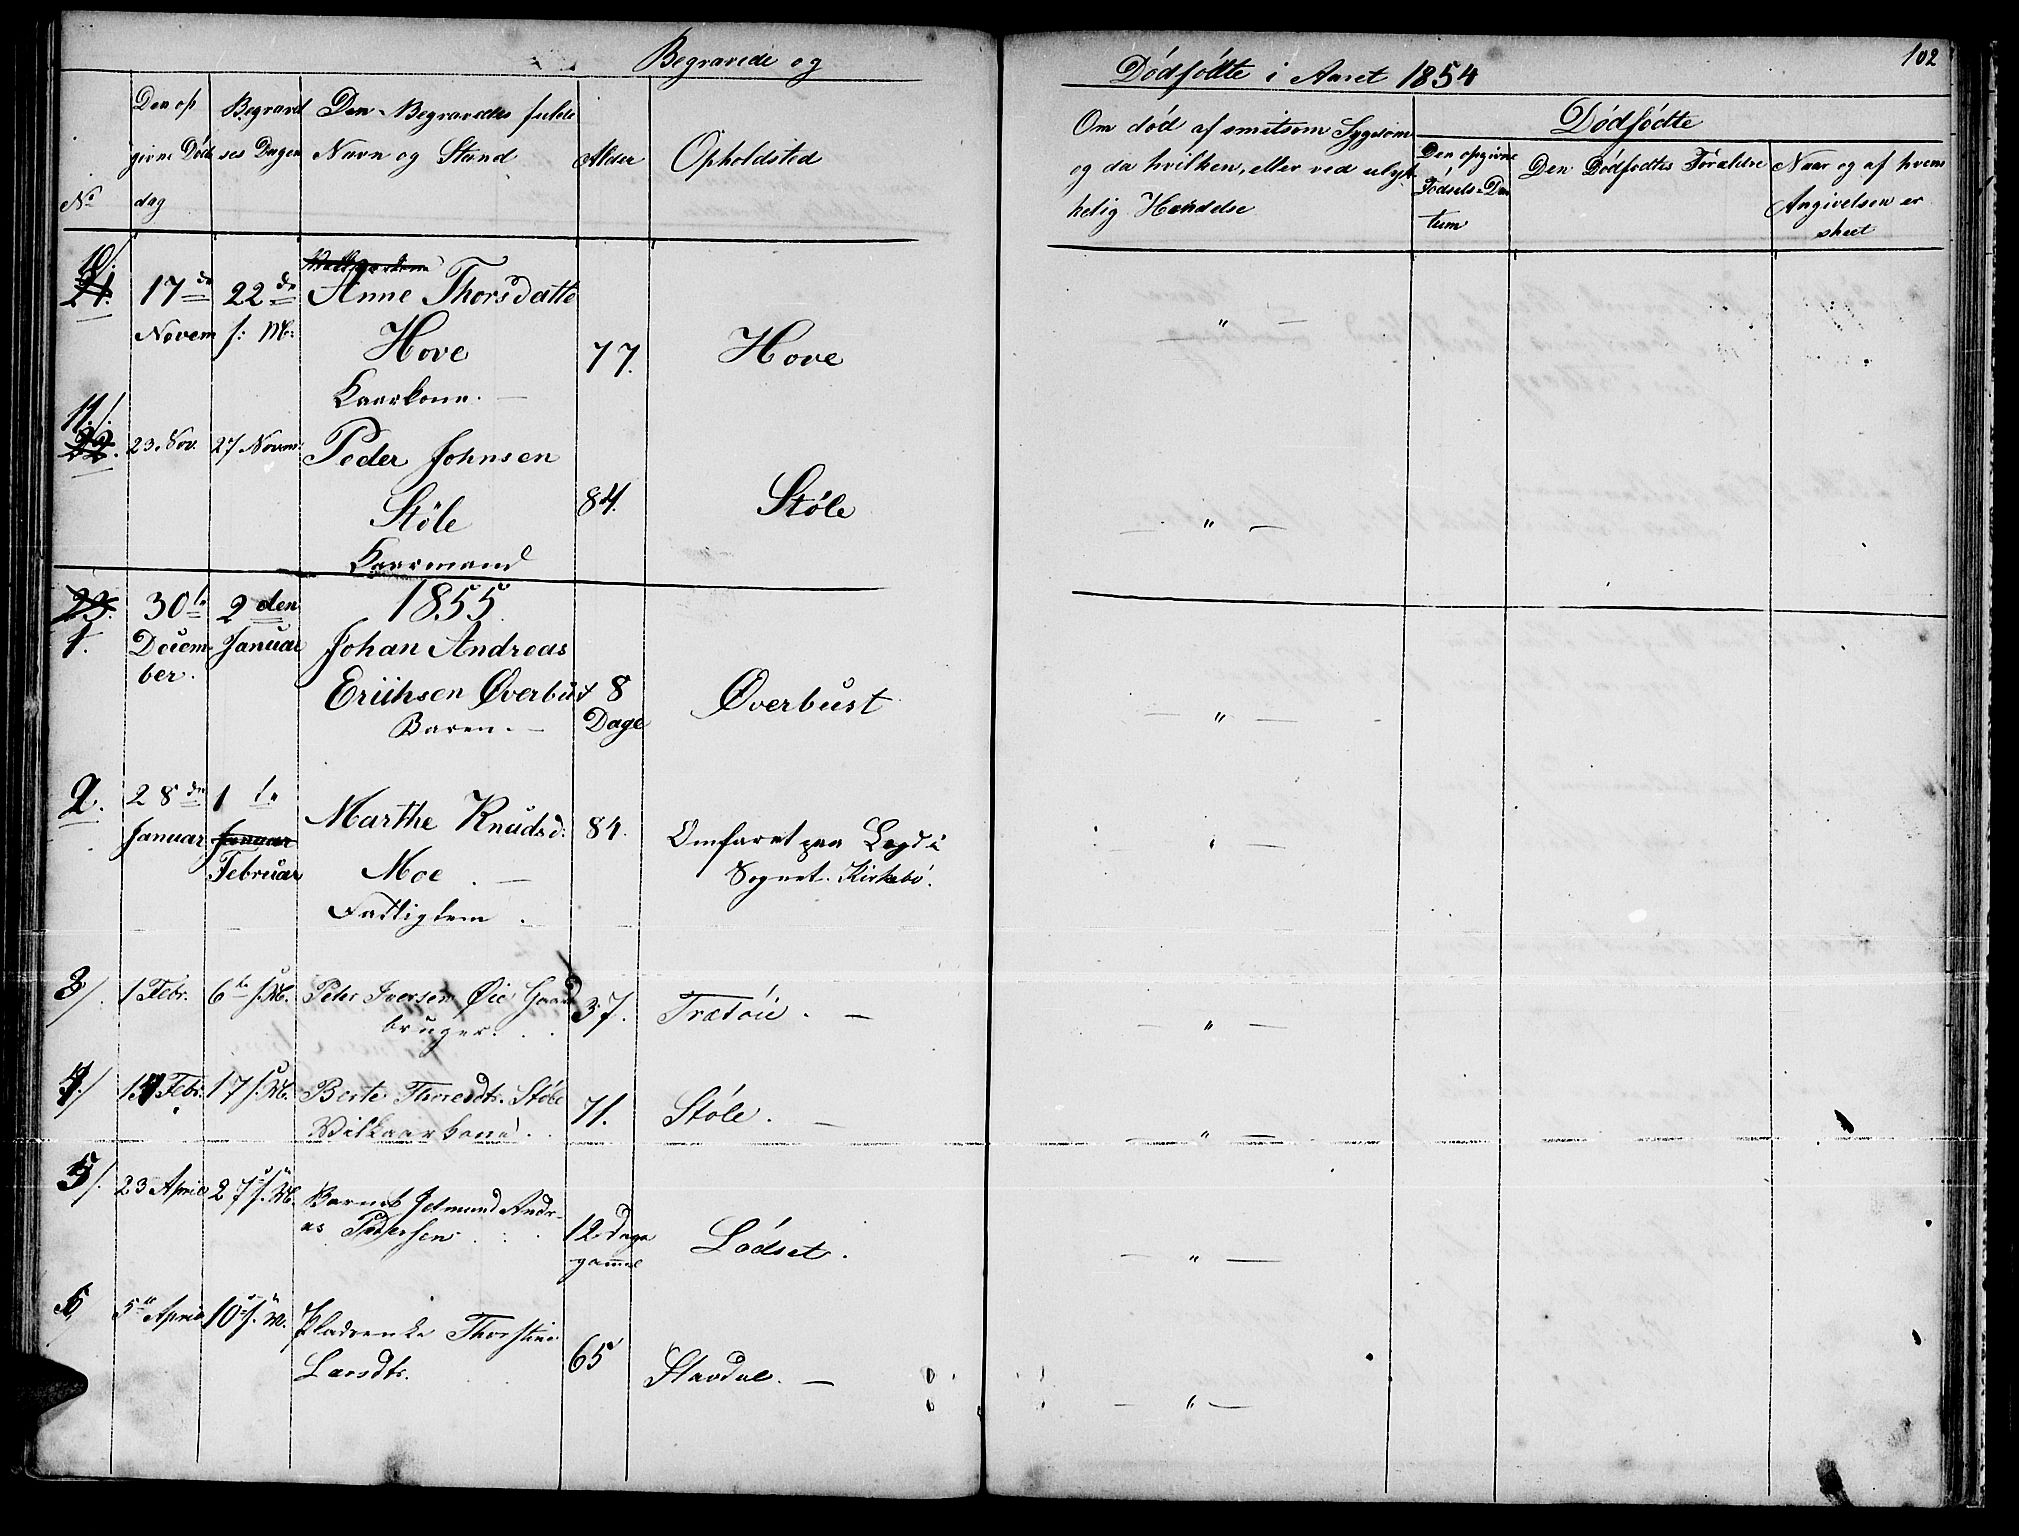 Begravede og
Dödfödte i Aaret 1854
102
No
Den op
givne Döds
dag
Begravel
ses Dagen
Den Begravedes fulde
Navn og Stand
Alder
Opholdsted
Om död af smitsom Sygdom
og da hvilken, eller ved ulyk
kelig Hændelse
Dödfödte
Den opgivne
Födsels-Da
tum
Den Dödfödtes Forældre
Naar og af hvem
Angivelsen er
skeet
10/.
21.
17de
Novem
22de
s: M:
Anne Thorsdatte
Hove
Kaarkone. —
77.
Hove
" —
11./.
22.
23. Nov.
27 Novem:
Peder Johnsen
Støle
Kaarmand
84.
Støle
— " —
23.
1.
30te
Decem-
ber.
2den
Januar
1855.
Johan Andreas
Eriihsen Øverbust
Baren. —
8
Dage
Øverbust
— " —
2.
28de
Januar
1te
Januar
Februar
Marthe Knudsd:
Moe. —
Fattiglem.
84.
Omfaret paa Legd i
Sognet. Kirkebö.
— " —
3/.
1 Febr.
6te s. M.
Peter Iversen Øie Gaard
bruger.
37.
Trætöie. —
— " —
4./
14 Febr.
17 s. M.
Berte Thoresdtr. Støle
Vilkaarkone.
71.
Stöle. —
— " —
5/.
23 April
27 s. M.
Barnet Edmund Andr-
as Pedersen.
12 Dage
gammel
Lödset.
— " —
6/
5te April
10 s. M.
Thorstine
Larsdtr.
65
Stavdal. —
— " —